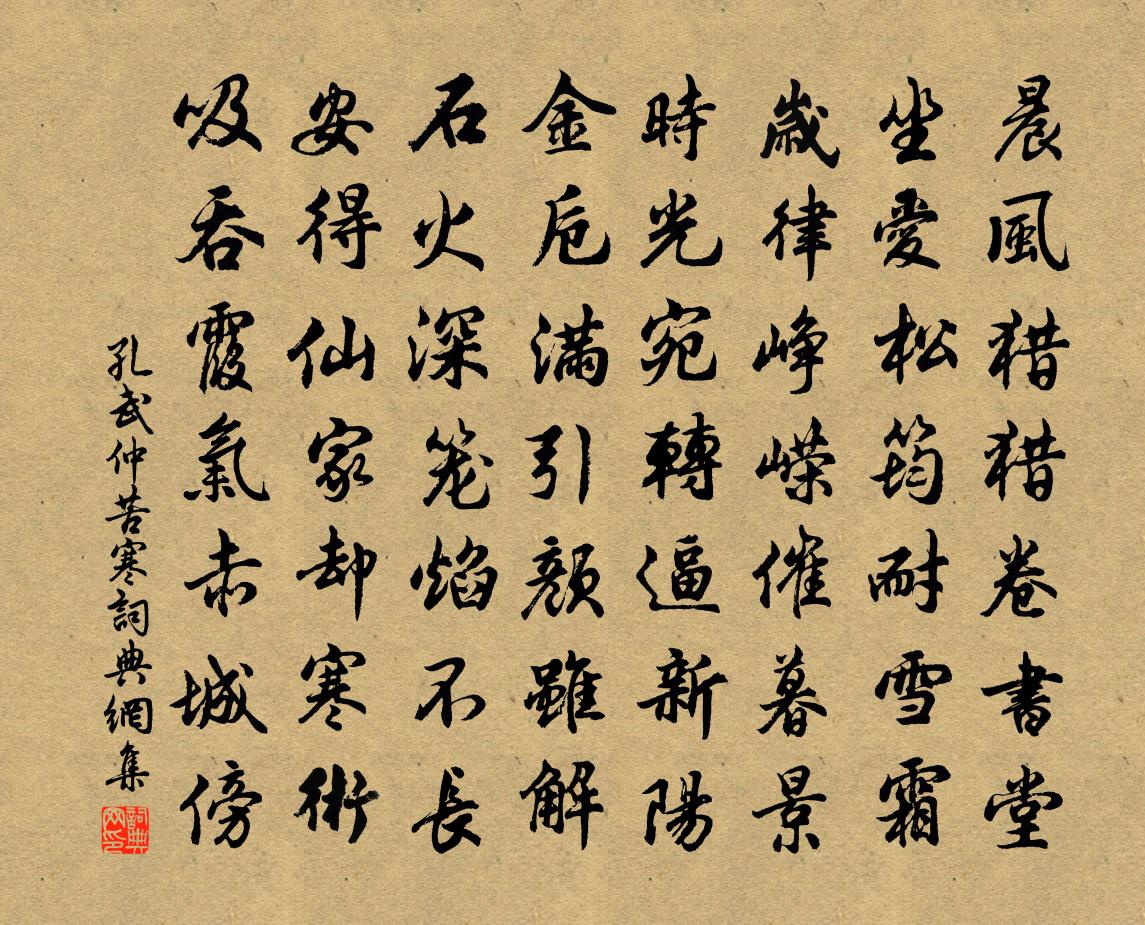 晨風猎猎卷書堂
坐愛松筠耐雪霜
歲律峥嵘催暮景
時光宛轉逼新陽
金卮满引顔雖解
石火深笼焰不長
安得仙家却寒術
吸吞霞氣赤城傍
孔武仲苦寒詞典網集
詞典网印